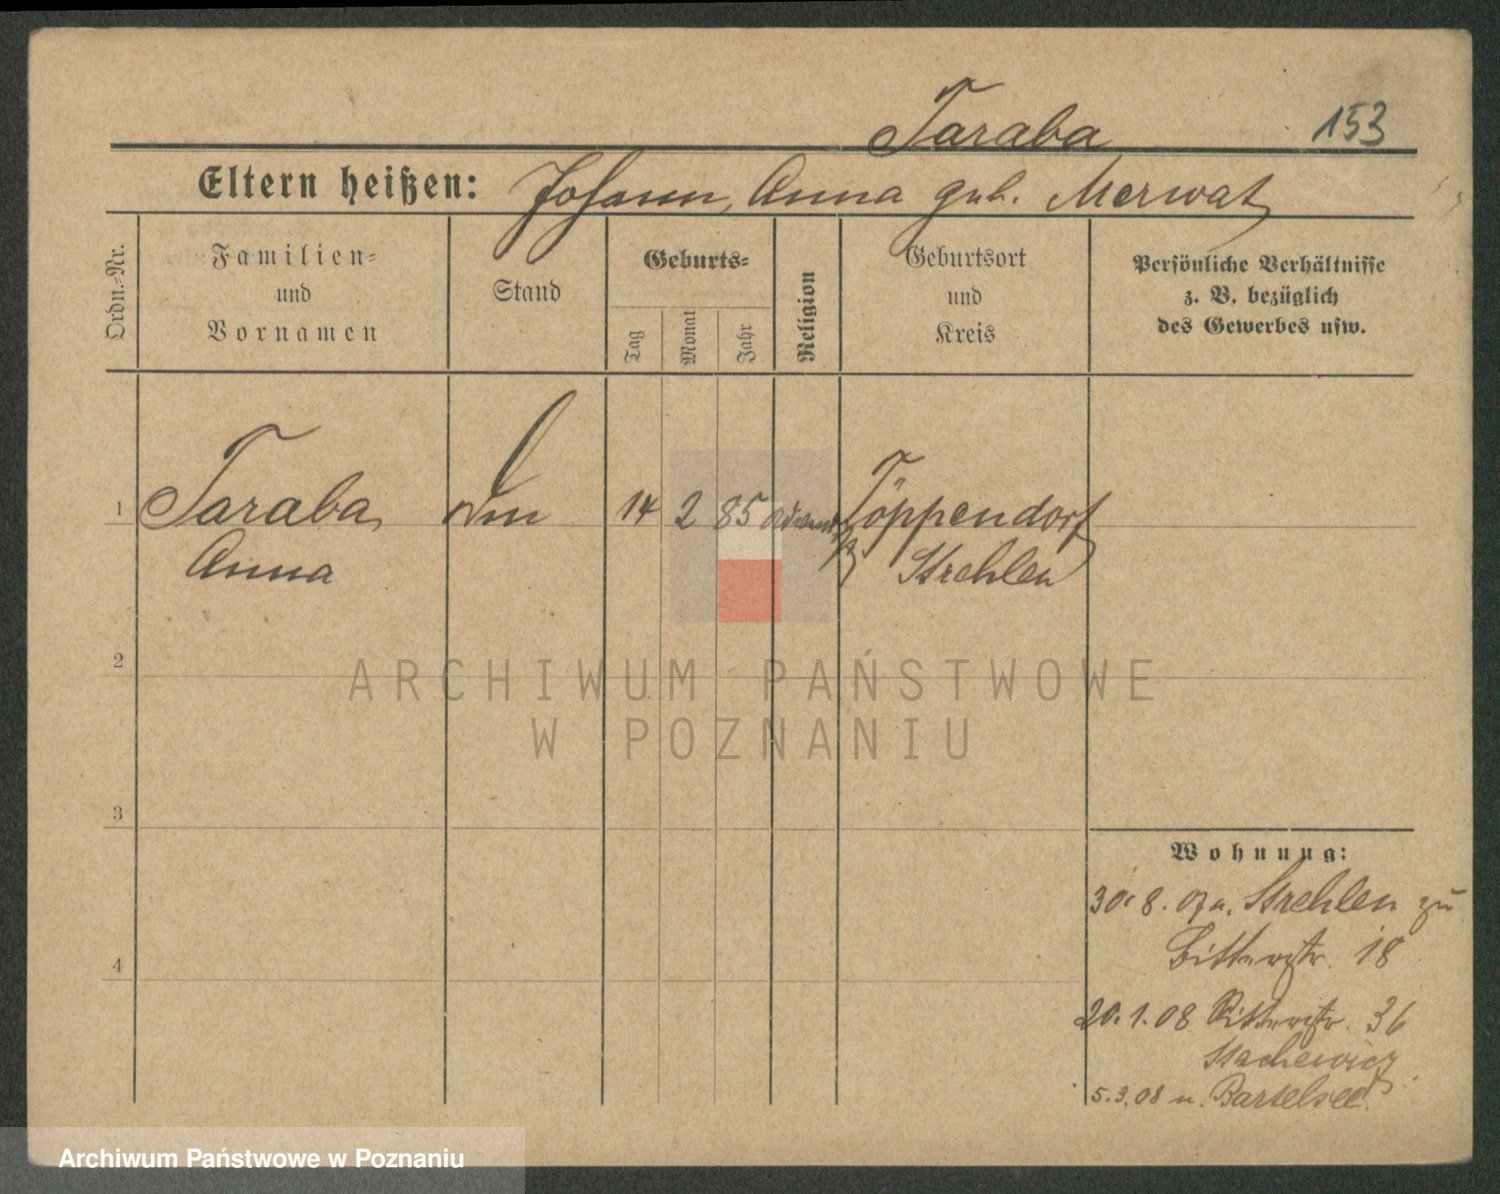 Taraba 153
Eltern heißen: Johann, Anna geb. Merwat
Ordn.-Nr.
Familien-
und
Vornamen
Stand
Geburts-
Tag
Monat
Jahr
Religion
Geburtsort
und
Kreis
Persönliche Verhältnisse
z. B. bezüglich
des Gewerbes usw.
1 Taraba, 14 2 85 Töppendorf
Anna Strehlen
2
ARCHIWUM PAŃSTWOWE
W POZNANIU
3
Wohnung:
30. 8. 07 a. Strehlen zu
Ritterstr. 18
4
20. 1. 08 Ritterstr. 36
Stachewicz
5. 3. 08 n. Bartelsee
Archiwum Państwowe w Poznaniu